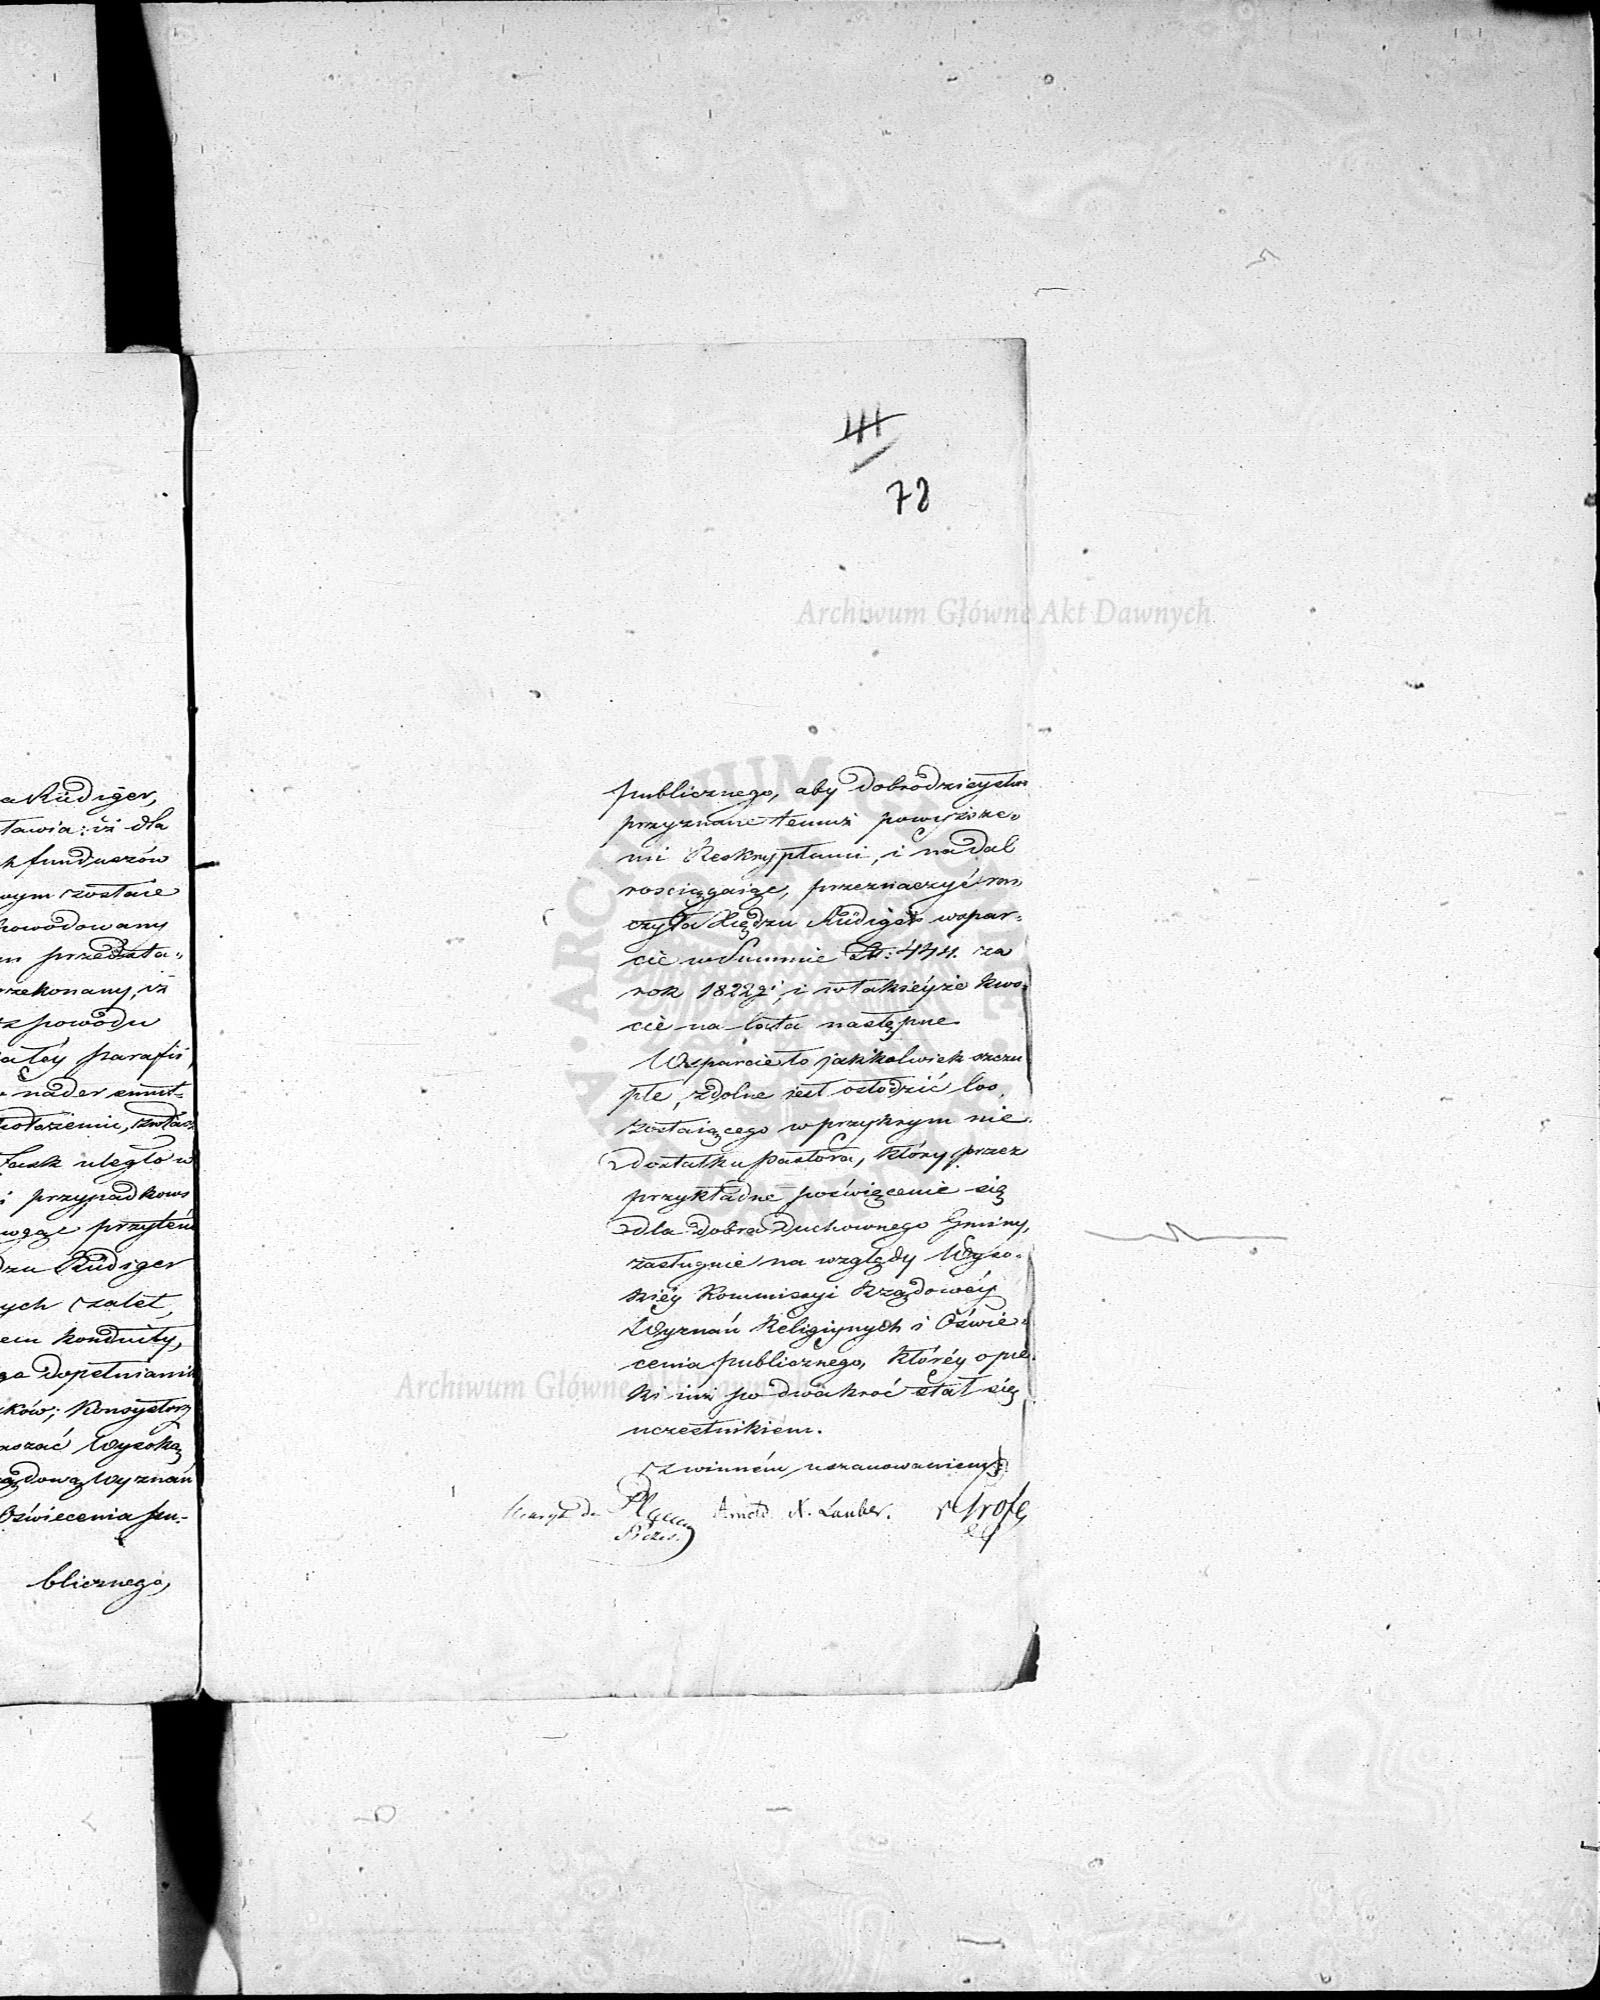 a Rüdiger,
tawia: iż dla
h funduszów
wym zostaie
powodowany
m przedsta„
rzekonany, iż
z powodu
ałéy parafii,
nader smut„
położeniu, zwłasz
Fasek uległo w
i przypadkowe
mogąc przytém
dzu Rüdiger
ych zalet,
em konduity,
ga dopełniania
ków; Konsystorz
aszać Wysoką
ządową Wyznań
Oświecenia pu„
blicznego,
78
Archiwum Główne Akt Dawnych
publicznego, aby dobrodzieystwo
przyznane temuż powyższe„
mi Reskryptami, i nadal
rosciągaiąc, przeznaczyć ra„
czyła Xiędzu Rüdiger wspar„
cie w Summie Zł: 444. za
rok 1822gi, i w takiéyże kwo„
cie na lata następne.
Wsparcie to jakkolwiek szczu
płe, zdolne iest osłodzić los,
zostaiącego w przykrym nie„
dostatku Pastora, który przez
przykładne poświęcenie się
dla dobra Duchownego Gminy,
zasługuie na względy Wyso„
kiéy Kommissyi Rządowéy
Wyznań Religiynych i Oświe„
cenia publicznego, któréy opie„
ki iuż po dwakroć stał się
uczestnikiem.
z winném uszanowaniem
Arnold N. Lauber.
Archiwum Główne Akt Dawnych